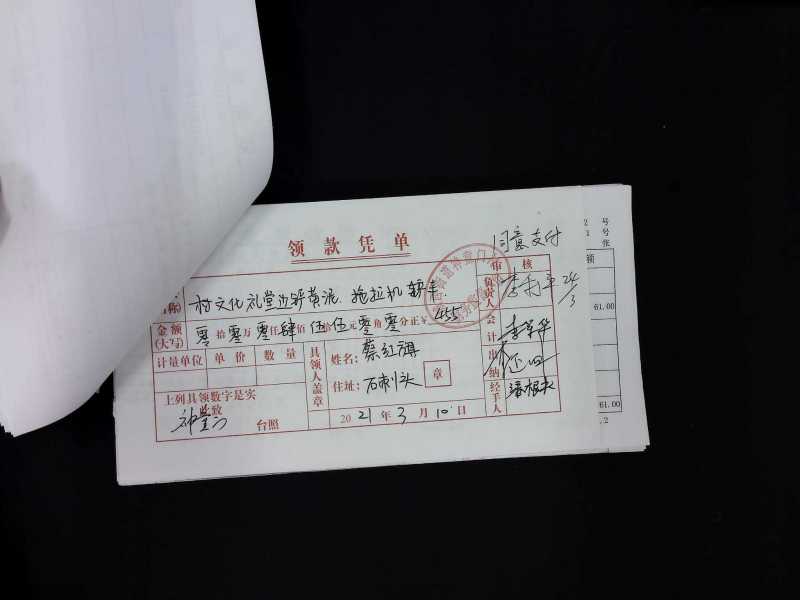 领款凭单
同意支付
村文化礼堂边 黄泥 拖拉机
审核
负责人
24/3
金额(大写) 零拾零万零仟肆佰伍拾伍元零角零分正¥455
会计
计量单位 单价 数量
具领人盖章
姓名: 蔡红旗
住址: 石刺头
章
出纳
经手人
上列具领数字是实
此致
台照
2021年3月10日
2 号
1 号
张
额
61.00
61.00